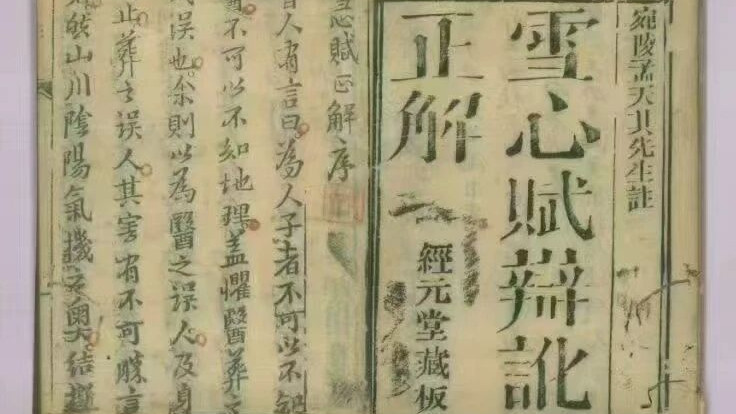 宛陵孟天其先生註
雪心賦辯訛
正解
經元堂藏板
雪心賦正解序
昔人有言曰為人子者不可以不知
醫不可以不知地理蓋懼醫葬之
誤也余則以為醫之誤人及身
止葬之誤人其害有不可勝言
然山川陰陽氣機之奧結